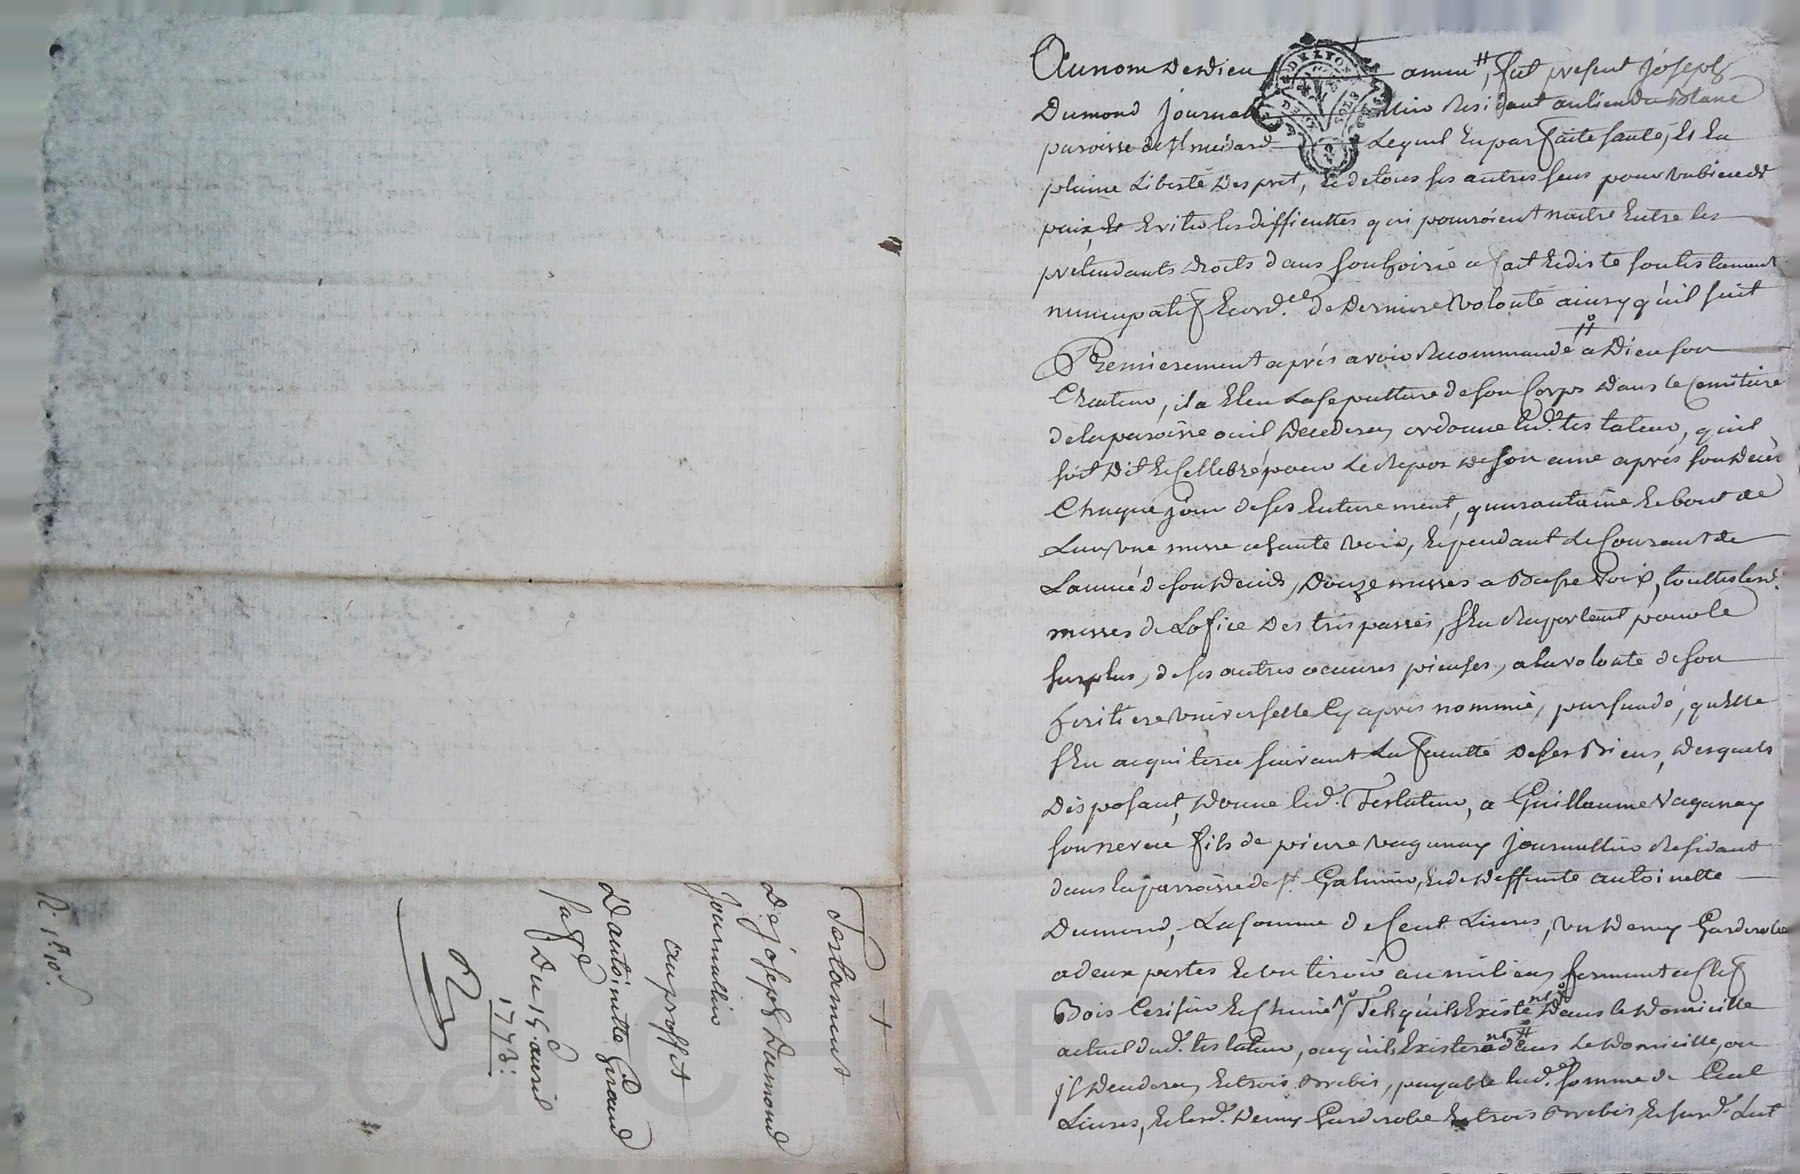 Testament
De joseph Dumond
journallier
au proffit
D'antoinette Giraud
sage
Du 15e avril
1773:
Au nom de Dieu amen, fut present joseph
Dumond journallier Residant au lieu du
paroisse de st medard Lequel En parfaite santé, Et En
plaine Liberté Desprit, Et de tous ses autres sens pour un bien de
paix, Et Eviter les difficultes qui pouroient naitre Entre les
prétendants droits dans son hoirie a fait Et dicté son testament
nuncupatif Et ord.re de Derniere Volonté ainsy qu'il suit
Premierement après avoir Recommandé a Dieu son
Createur, il a Eleu La sepulture de son Corps Dans le Cemitiere
de la paroisse ou il Decedera, ordonne led. testateur, quil
soit Dit Et Cellebré pour Le Repos de son ame après son Decès
Chaque jour de ses Enterrement, quarantaine Et bout de
Lan, une messe a haute voix, Et pendant Le Courant de
L'année de son Decès, Douze messes a Basse Voix, touttes lesd.
messes de Lofice Des trepassés, s'En Raportant pour le
surplus, de ses autres oeuvres pieuses, a la volonté de son
heritiere universelle Cy après nommée, persuadé, qu'Elle
s'En acquitera suivant La faculté De ses Biens, Desquels
Disposant, Donne led. Testateur, a Guillaume Vaganay
son neveu fils de pierre vaganay journallier Residant
dans la parroisse de st. Galmier, Et de Deffunte antoinette
Dumond, La somme de Cent Livres, un Demy Garderobe
a deux portes Et un tiroir au milieu, fermant a Clef
Bois Cerisier Et Chene, Tel qu'ils Existe Dans le Domicille
actuel dud. testateur, ou qu'ils Existera dans Le Domicille, ou
il Decedera, Et trois Brebis, payable lad. somme de Cent
Livres, Et led. Demy Garderobe Et trois Brebis,